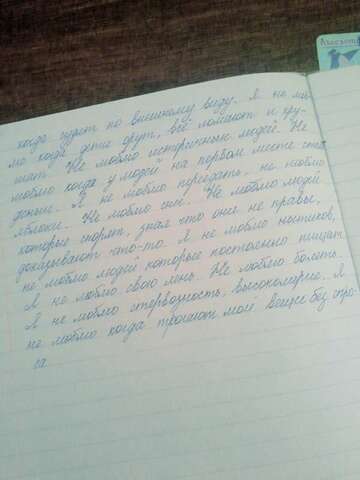 когда судят по внешнему виду. Я не люб-
лю когда дети орут, всё ломают и кру-
шат. Не люблю истеричных людей. Не
люблю когда у людей на первом месте сто
деньги. Я не люблю переедать, не люблю
яблоки. Не люблю Не люблю людей
которые спорят, зная что они не правы,
доказывают что-то. Я не люблю нытиков,
не люблю людей которые постоянно пищат
Я не люблю свою лень. Не люблю болеть.
Я не люблю стервозность, высокомерие. Я
не люблю когда трогают мои вещи без спро-
са